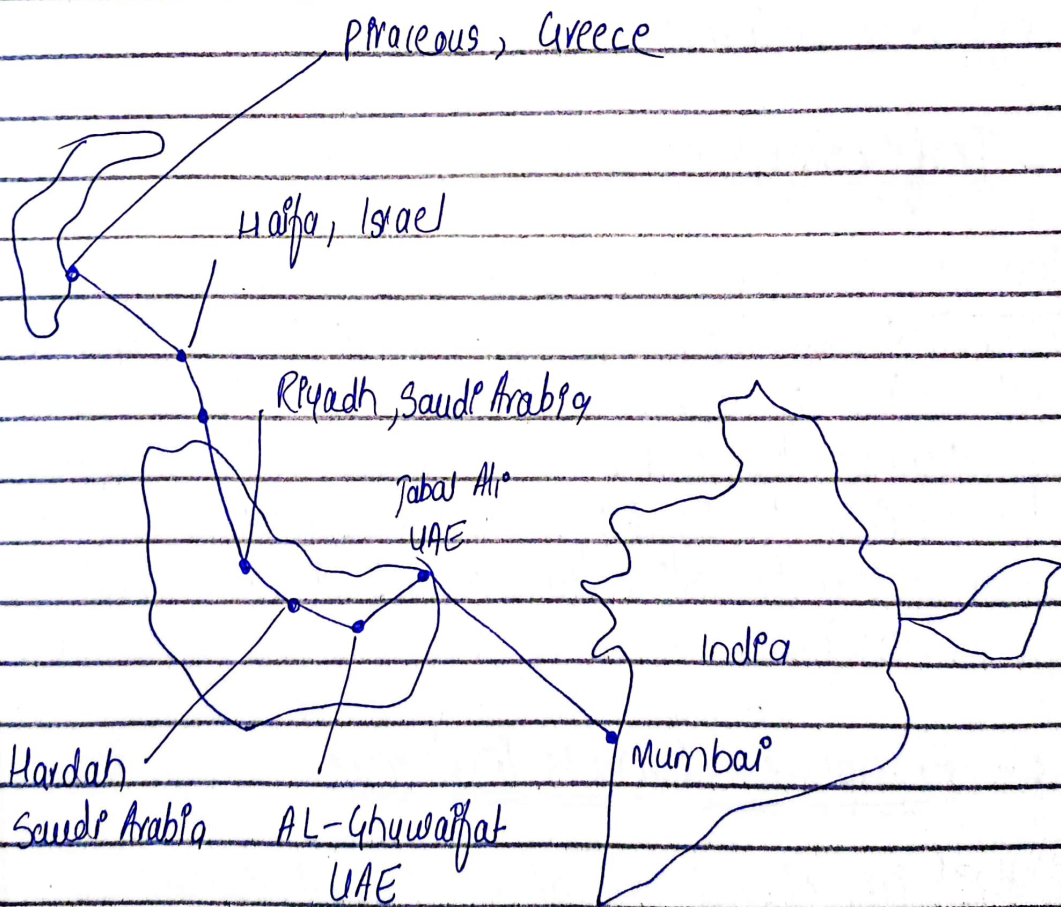 Piraceous, Greece
Haifa, Israel
Riyadh, Saudi Arabia
Jabal Ali
UAE
India
Mumbai
Hardah
Saudi Arabia
AL-Ghuwaifat
UAE